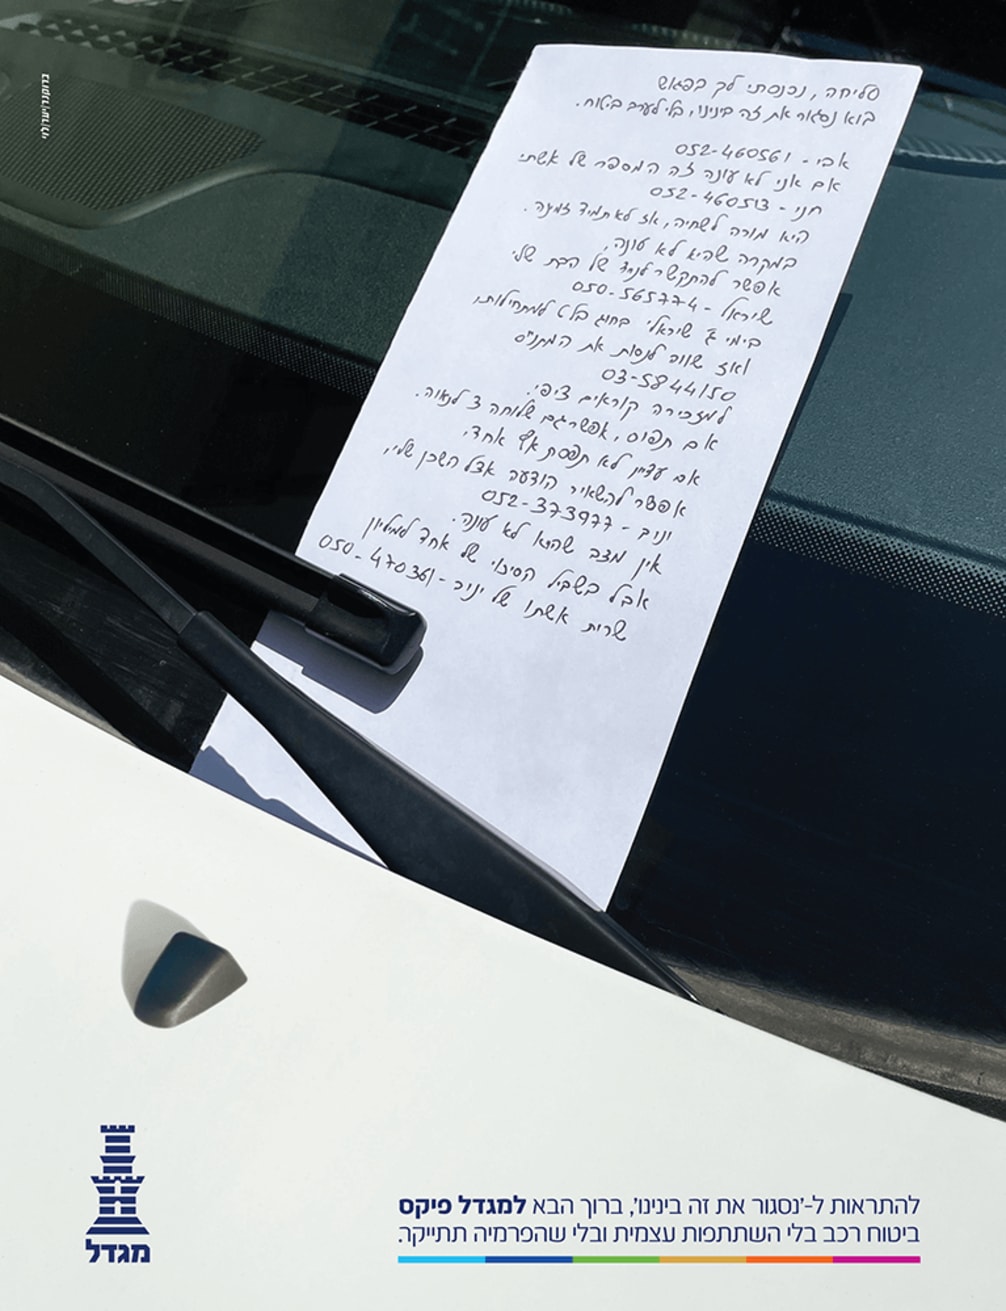 סליחה, נכנסתי לך בפגוש
בוא נסגור את זה בינינו, בלי לערב ביטוח.
אבי - 052-460561
אם אני לא עונה זה המספר של אשתי
חני - 052-460513
היא מורה לשחיה, אז לא תמיד זמינה.
במקרה שהיא לא עונה,
אפשר להתקשר לנייד של הבת שלי
שיראל - 050-565774
בימי ג' שיראלי בחוג בלט למתחילות,
ואז שווה לנסות את המתנ"ס
03-5844150
למזכירה קוראים ציפי.
אם תפוס, אפשר גם שלוחה 3 לנאוה.
אם עדיין לא תפסת אף אחד,
אפשר להשאיר הודעה אצל השכן שלי,
יניב - 052-373977
אין מצב שהוא לא עונה.
אבל בשביל הסיכוי של אחד למיליון
שרית אשתו של יניב - 050-470361
להתראות ל-'נסגור את זה בינינו', ברוך הבא למגדל פיקס
ביטוח רכב בלי השתתפות עצמית ובלי שהפרמיה תתייקר.
מגדל